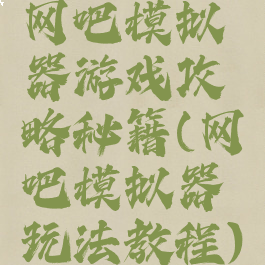 网吧模拟
器游戏攻
略秘籍(网
吧模拟器
玩法教程)